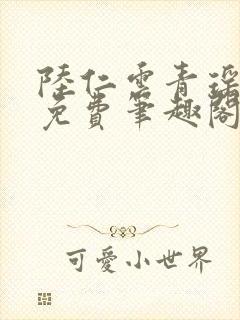 陸仁雲青瑤
免費筆趣閣
可愛小世界